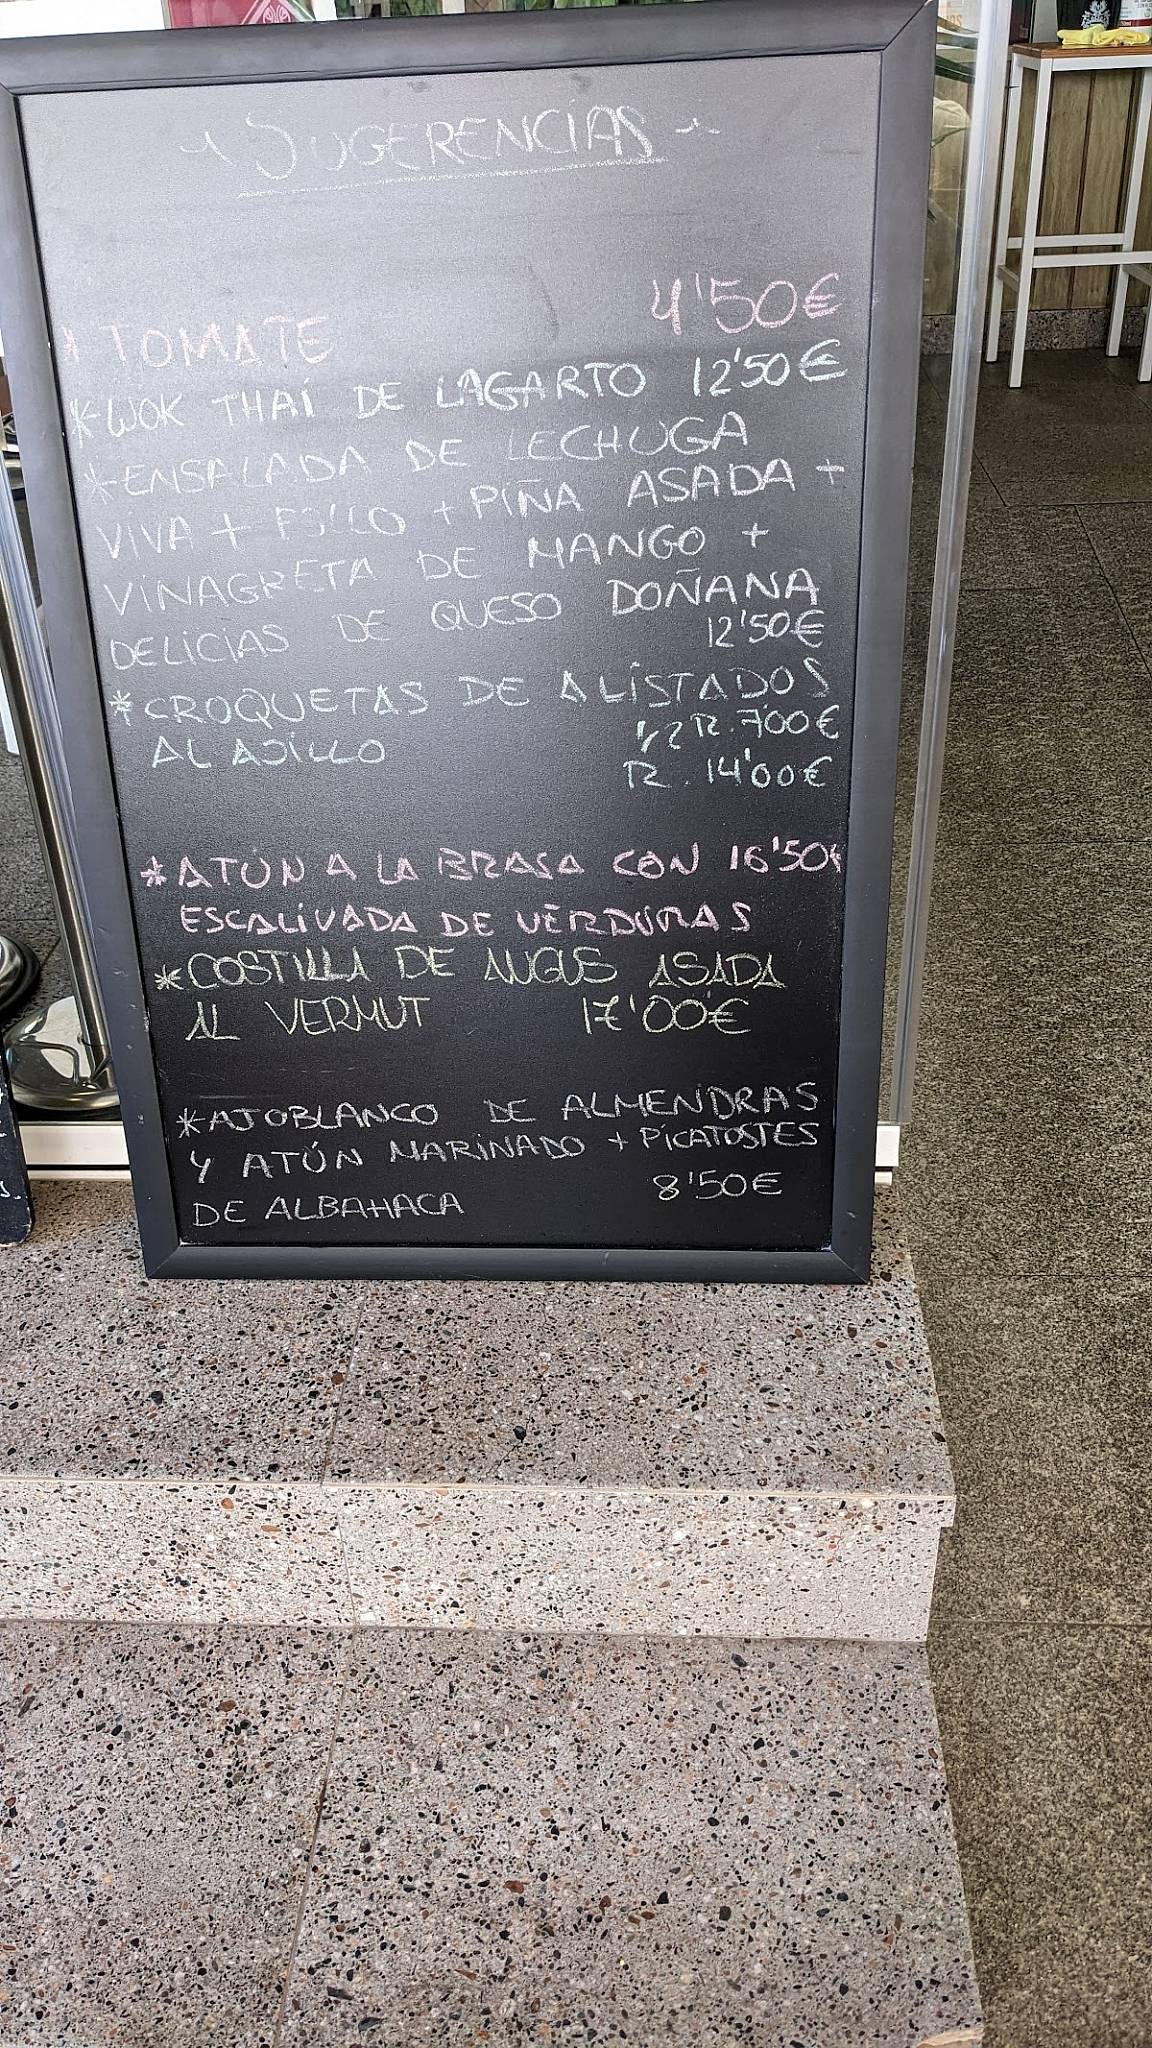 SUGERENCÍAS
* TOMATE 4'50€
*WOK THAÍ DE LAGARTO 12'50€
*ENSALADA DE LECHUGA
VIVA + POLLO + PIÑA ASADA +
VINAGRETA DE MANGO +
DELICIAS DE QUESO DOÑANA
12'50€
*CROQUETAS DE ALISTADOS
AL AJILLO 1/2 R. 7'00€
R. 14'00€
*ATÚN A LA BRASA CON 16'50€
ESCALIVADA DE VERDURAS
*COSTILLA DE ANGUS ASADA
AL VERMUT 17'00€
*AJOBLANCO DE ALMENDRAS
Y ATÚN MARINADO + PICATOSTES
DE ALBAHACA 8'50€